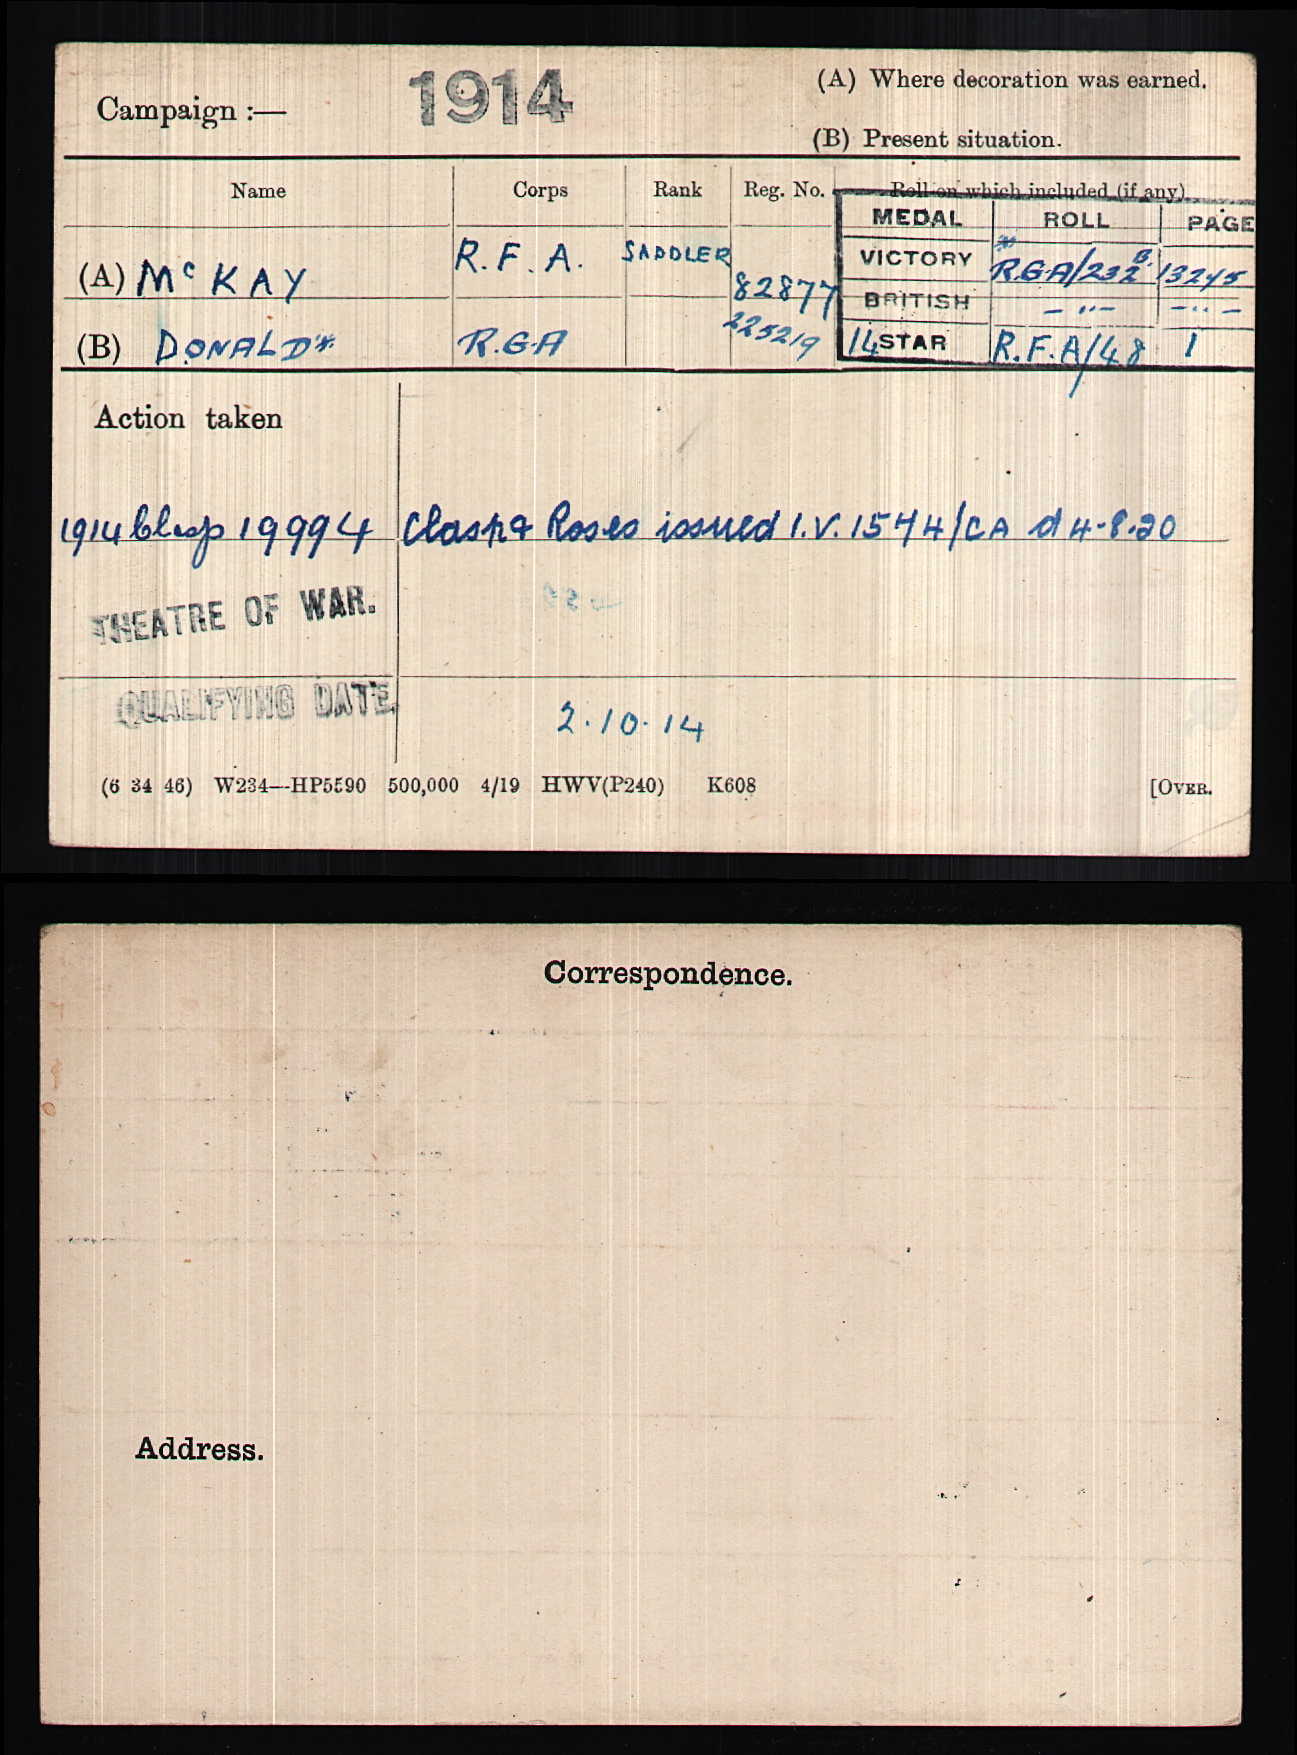 Campaign :— 1914
(A) Where decoration was earned.
(B) Present situation.
Name Corps Rank Reg. No. Roll on which included (if any)
MEDAL ROLL PAGE
(A) McKAY R.F.A. SADDLER 82877 VICTORY * R.G.A/232 B. 13245
BRITISH — " — — " —
(B) DONALD * R.G.A 225219 14 STAR R.F.A/48 1
Action taken
1914 Clasp 19994 Clasp & Roses issued I.V. 1574/CA d 4.8.20
THEATRE OF WAR.
QUALIFYING DATE. 2.10.14
(6 34 46) W234—HP5590 500,000 4/19 HWV(P240) K608 [OVER.
Correspondence.
Address.